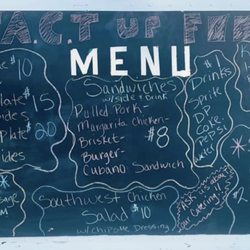 A.C.T UP F
MENU
$10
Plate $15
Sides
Plate $20
Sides
Sandwiches
w/side & Drink
Pulled Pork-
Margarita Chicken-
Brisket-
Burger-
Cubano Sandwich
$8
$1
Drinks
Sprite
DP
Coke
Pepsi
water
Southwest Chicken
Salad $10
w/chipotle Dressing
Ask us about
our Catering